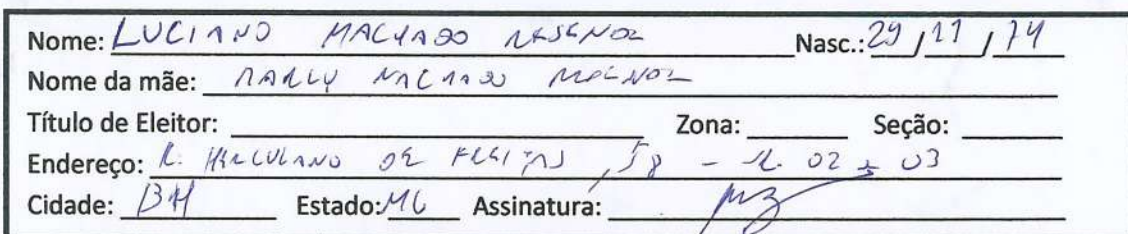 Nome: LUCIANO MACHADO RESENDE Nasc.: 29 / 11 / 74
Nome da mãe: MARLY MACHADO
Título de Eleitor: Zona: Seção:
Endereço: R. HERCULANO DE FREITAS, 58 -
Cidade: BH Estado: MG Assinatura: